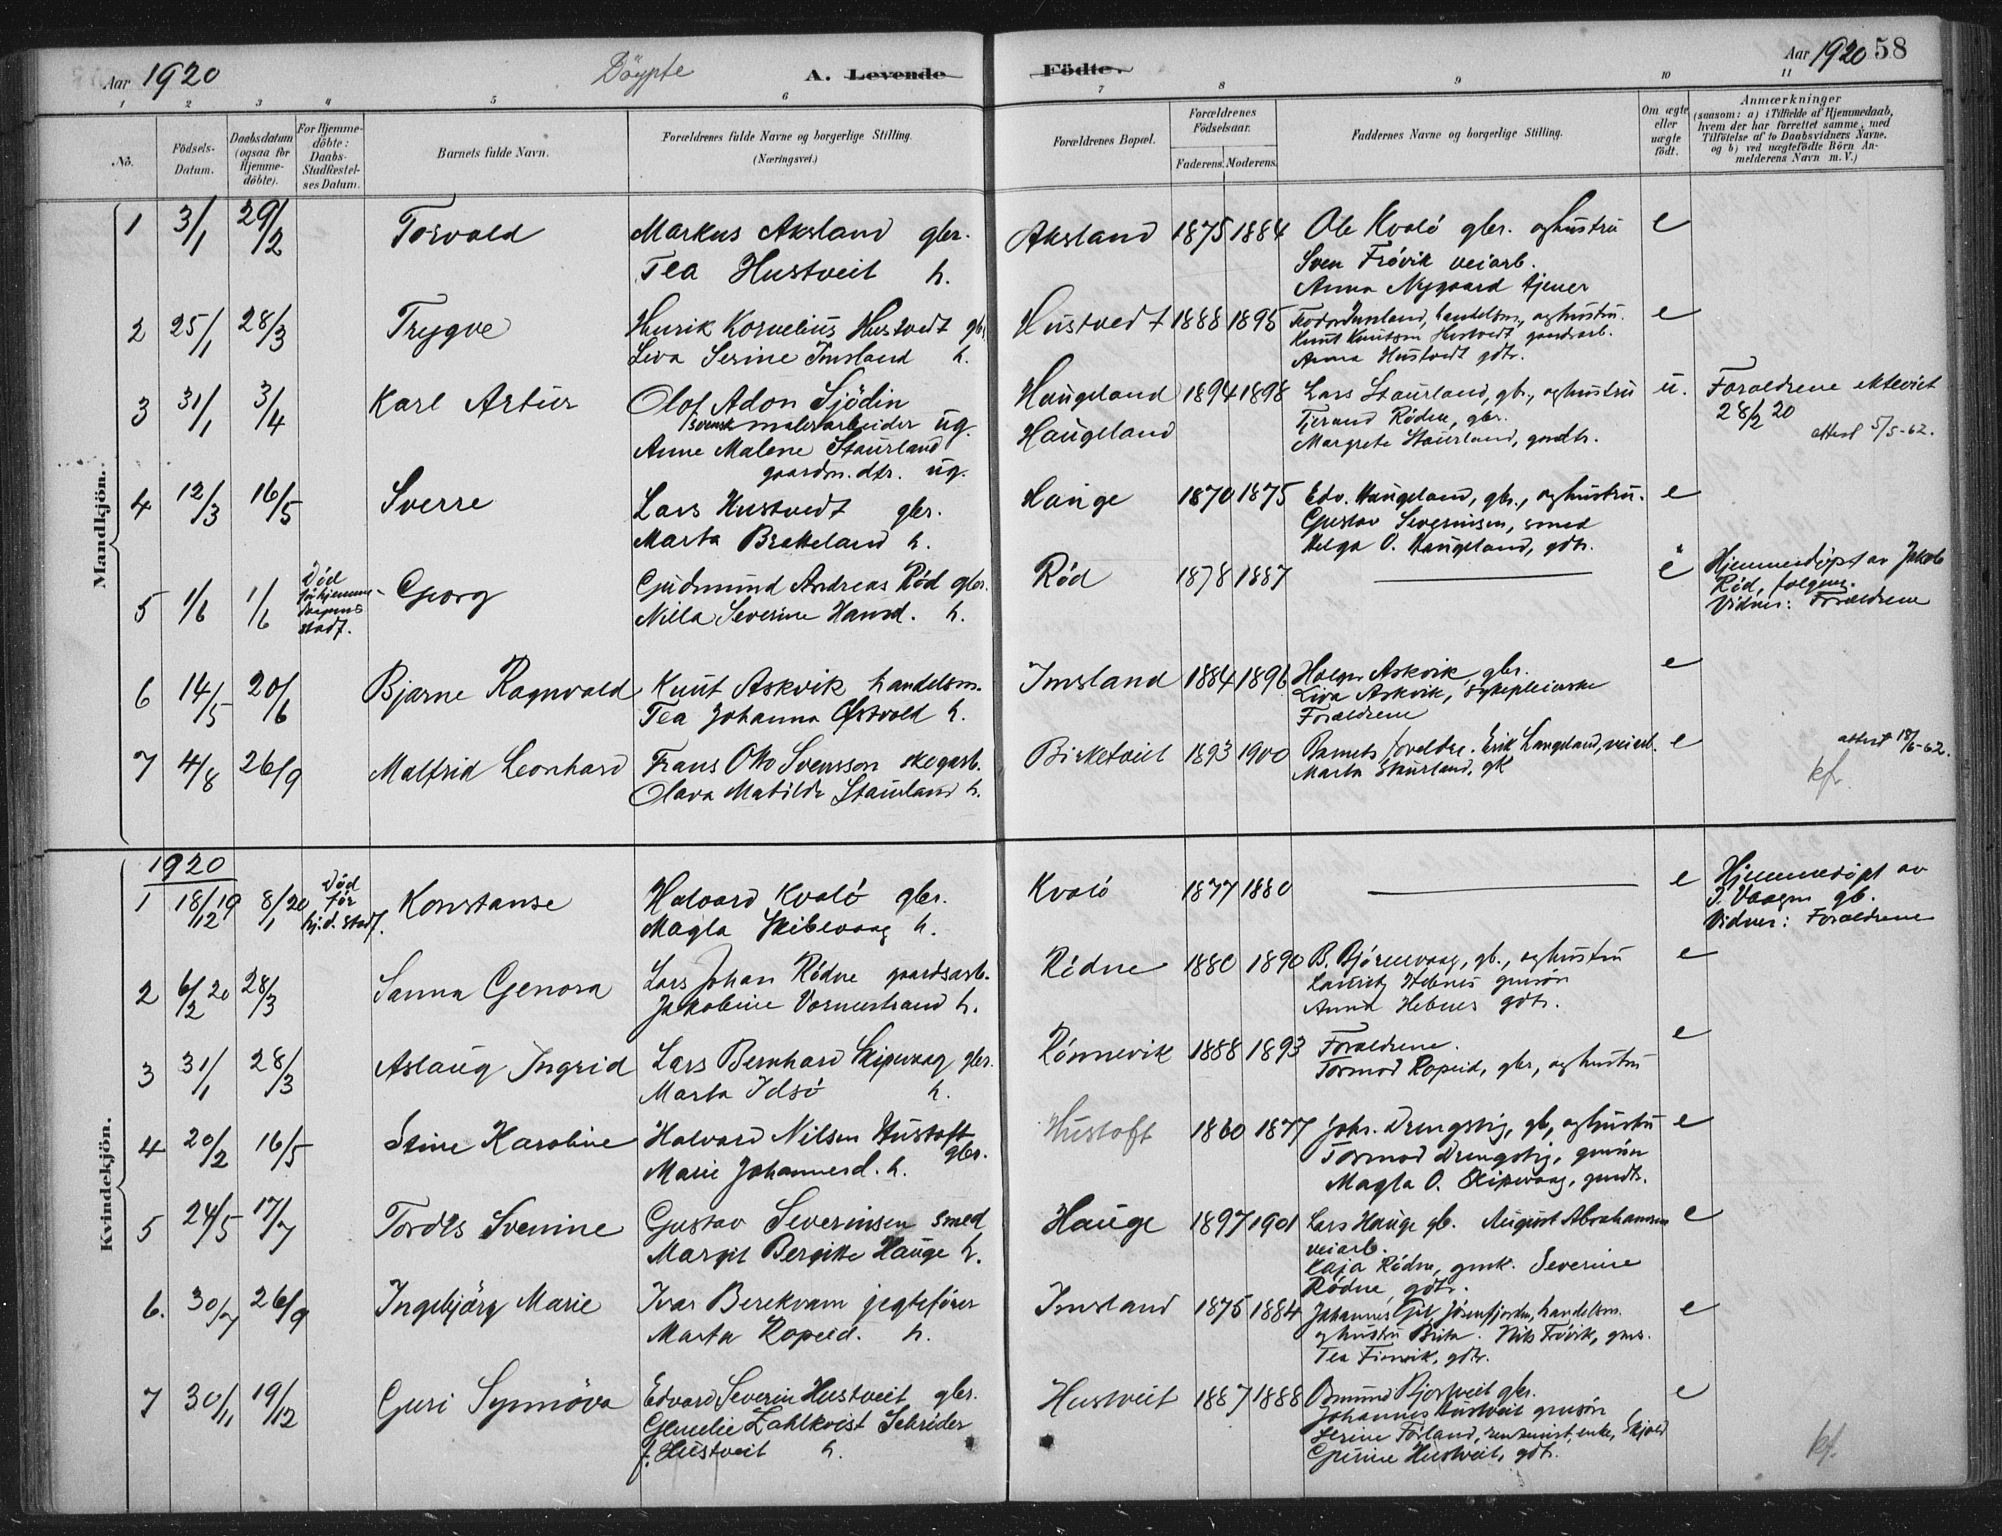 Aar 1920
Döypte
A. Levende
Födte.
Aar 1920
58
1 2 3 4 5 6 7 8 9 10 11
No.
Födsels-Datum.
Daabsdatum (ogsaa for Hjemme-döbte).
For Hjemme-döbte: Daabs-Stadfæstel-ses Datum.
Barnets fulde Navn.
Forældrenes fulde Navne og borgerlige Stilling.
(Næringsvei.)
Forældrenes Bopæl.
Forældrenes Födselsaar.
Faderens. Moderens.
Faddernes Navne og borgerlige Stilling.
Om ægte eller uægte födt.
Anmærkninger
(saasom: a) i Tilfælde af Hjemmedaab,
hvem der har forrettet samme, med
Tilföielse af to Daabsvidners Navne,
og b) ved uægtefödte Börn An-
melderens Navn m. V.)
Mandkjön.
1 3/1 29/2 Torvald Markus Aksland gbr. Aksland 1875 1884 Ole Kvalö gbr. og hustru e
Tea Hustveit h. Sven Frövik veiarb.
Anna Nygaard tjener
2 25/1 28/3 Trygve Henrik Kornelius Hustvedt gbr Hustvedt 1888 1895 Imsland, handelsm., og hustru. e
Liva Serine Imsland h. Knut Knutsen Hustvedt gaardsarb.
Anna Hustvedt gdtr.
3 31/1 3/4 Karl Artur Olof Adon Sjödin Haugeland 1894 1898 Lars Staurland, gb., og hustru u. Foraldrene ektevict
svensk malerarbeider ug. Haugeland Tjerand Rödne, gbr. 28/2 20
Anne Malene Staurland Margrete Staurland, gmdtr. attest 5/5-62.
gaardm. dtr. ug.
4 12/3 16/5 Sverre Lars Hustvedt gbr. Hauge 1870 1875 Edv. Haugeland, gbr., og hustru. e
Marta Brekkeland h. Gustav Severinsen, smed
Helga O. Haugeland, gdtr.
5 1/6 1/6 Död för hjemme-daapens stadf. Georg Gudmund Andreas Röd gbr. Röd 1878 1887 e Hjemmedöpt av Jakob
Nilla Severine Hansd. h. Röd,
Vidner: Foraldrene
6 14/5 20/6 Bjarne Ragnvald Knut Askvik handelsm. Imsland 1884 1896 Askvik, gbr. e
Tea Johanna Østvold h. Liva Askvik, sykepleierske
Foraldrene
7 4/8 26/9 Malfrid Leonhard Frans Otto Svensson skogarb. Birketveit 1893 1900 Barnets foreldre. Erik Langeland, veiarb. e attest 18/6-62.
Olava Matilde Staurland h. Marta Staurland, gk kf.
Kvindekjön.
1920
1 18/12 19 8/1 20 Död för hj.d. stadf. Konstanse Halvard Kvalö gbr. Kvalö 1877 1880 e Hjemmedöpt av
Magla Skibevaag h. J. Vaagen gb.
Vidner: Foraldrene
2 6/2 20 28/3 Sanna Genora Lars Johan Rödne gaardsarb. Rödne 1880 1890 B. Björnevaag, gb., og hustru e
Jakobine Vormestrand h. Lauritz Hebnes gmsön
Anna Hebnes gdtr.
3 31/1 28/3 Aslaug Ingrid Lars Bernhard Skipevaag gbr. Rönnevik 1888 1893 Foraldrene. e
Marta Idsö h. Tormod Ropeid, gbr, og hustru
4 20/2 16/5 Stine Karoline Halvard Nilsen Hustoft Hustoft 1860 1877 Johs. Drengstig, gb, og hustru e
gbr. Tormod Drengstig, gmsön
Marie Johannesd. h. Magla O. Skipevaag, gmdtr.
5 24/5 17/7 Tordis Svenine Gustav Severinsen smed Hauge 1897 1901 Lars Hauge gb. August Abrahamsen e
Margit Bergitte Hauge h. veiarb.
Kaja Rödne, gmk. Severine
Rödne, gdtr.
6. 30/7 26/9 Ingebjörg Marie Ivar Berekvam jegtefører Imsland 1875 1884 Johannes Jösenfjorden, handelsm. e
Marta Ropeid. h. og hustru Brita. Nils Frövik, gms.
Tea Finvik, gdtr.
7 30/11 19/12 Guri Synnöva Edvard Severin Hustveit gbr. Hustveit 1887 1888 Osmund Bjortveit gbr. e
Zahlkvist Schrider Johannes Hustveit gmsön
f. Hustveit h. Serine Förland, enke, Skjold
Gurine Hustveit, gdtr. kf.